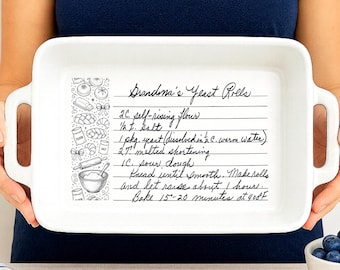 Grandma's Yeast Rolls
2C. self-rising flour
½ t. salt
1 pkg. yeast (dissolved in ½ C. warm water)
2T. melted shortening
1C. sour dough
Knead until smooth. Make rolls
and let raise about 1 hour.
Bake 15-20 minutes at 400°F